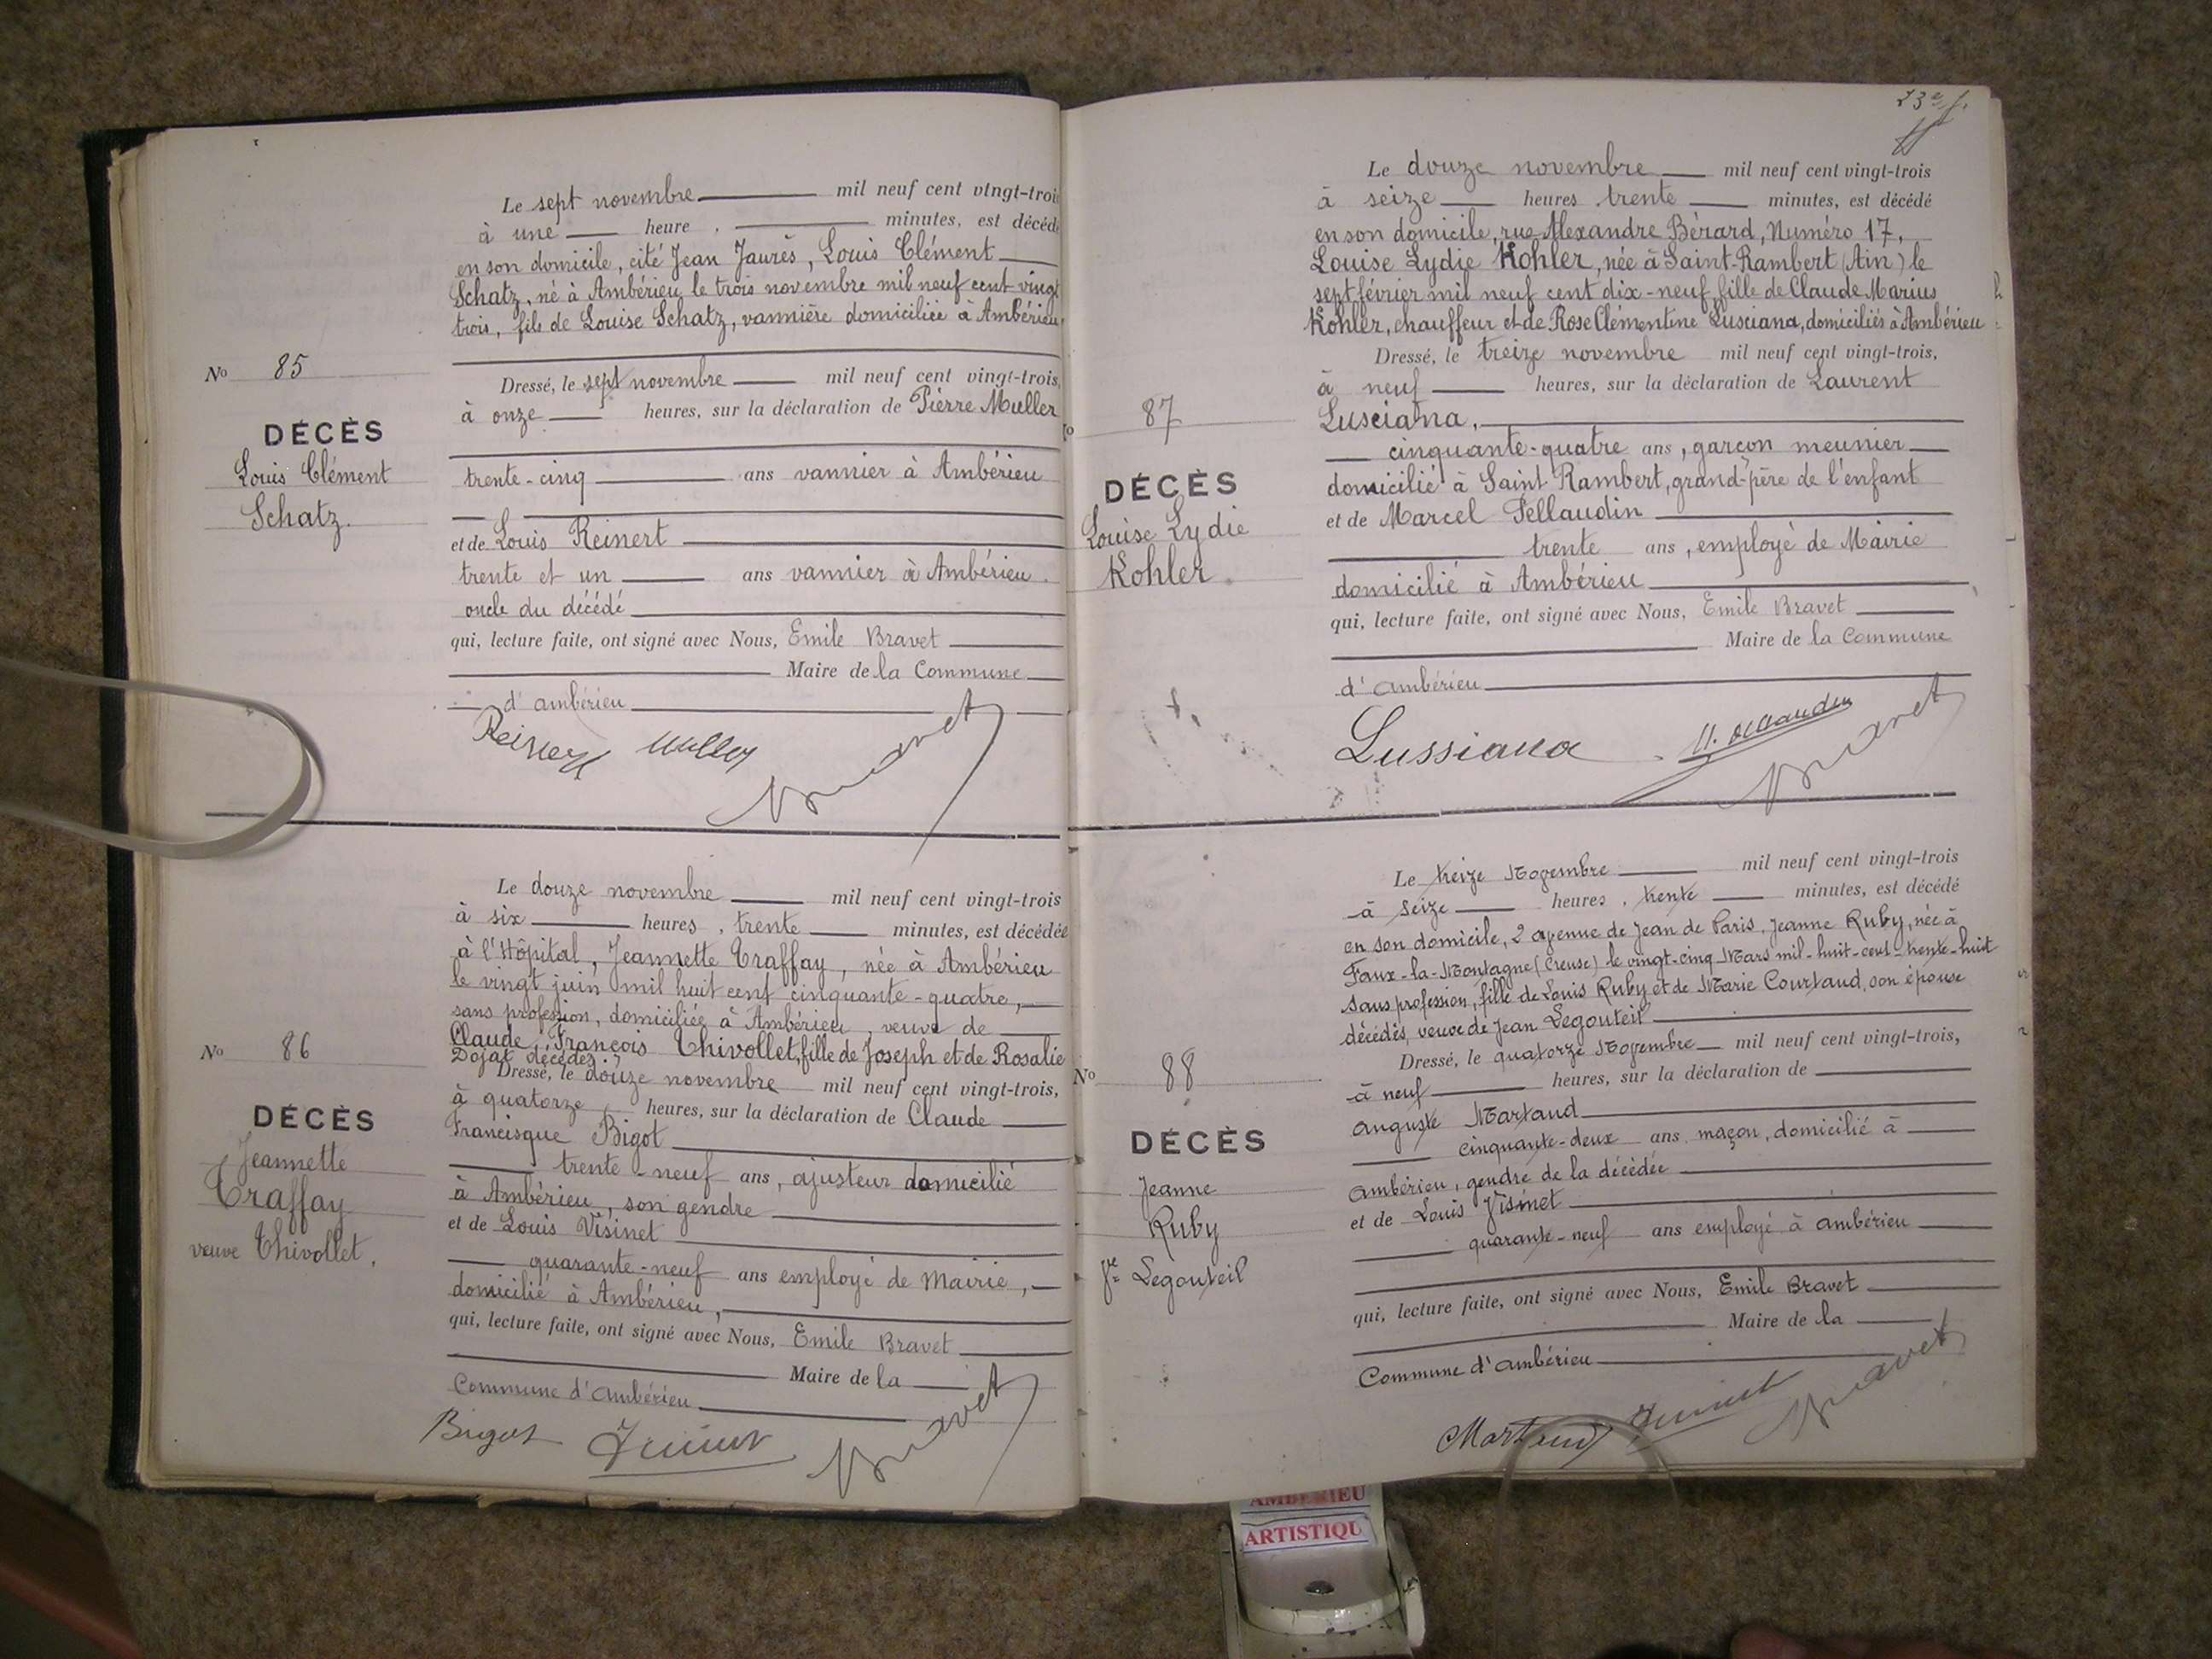 Le sept novembre mil neuf cent vingt-trois
à une heure, minutes, est décédé
en son domicile, cité Jean Jaurès, Louis Clément
Schatz, né à Ambérieu le trois novembre mil neuf cent vingt
trois, fils de Louise Schatz, vannière domiciliée à Ambérieu
No 85
Dressé, le sept novembre mil neuf cent vingt-trois,
à onze heures, sur la déclaration de Pierre Muller
DÉCÈS
Louis Clément
Schatz.
trente-cinq ans vannier à Ambérieu
et de Louis Reinert
trente et un ans vannier à Ambérieu.
oncle du décédé
qui, lecture faite, ont signé avec Nous, Emile Bravet
Maire de la Commune
d'ambérieu
Reinert Muller Bravet
Le douze novembre mil neuf cent vingt-trois
à six heures, trente minutes, est décédée
à l'Hôpital, Jeannette Traffay, née à Ambérieu
le vingt juin mil huit cent cinquante-quatre,
sans profession, domiciliée à Ambérieu, veuve de
Claude François Thivollet, fille de Joseph et de Rosalie
Dojat décédés.
No 86
Dressé, le douze novembre mil neuf cent vingt-trois,
à quatorze heures, sur la déclaration de Claude
Francisque Bigot
DÉCÈS
Jeannette
Traffay
veuve Thivollet.
trente-neuf ans, ajusteur domicilié
à Ambérieu, son gendre
et de Louis Visinet
quarante-neuf ans employé de Mairie,
domicilié à Ambérieu,
qui, lecture faite, ont signé avec Nous, Emile Bravet
Maire de la
Commune d'ambérieu
Bigot Visinet Bravet
23e f.
Le douze novembre mil neuf cent vingt-trois
à seize heures trente minutes, est décédé
en son domicile, rue Alexandre Bérard, Numéro 17,
Louise Lydie Kohler, née à Saint-Rambert (Ain) le
sept février mil neuf cent dix-neuf, fille de Claude Marius
Kohler, chauffeur et de Rose Clémentine Lusciana, domiciliés à Ambérieu
Dressé, le treize novembre mil neuf cent vingt-trois,
à neuf heures, sur la déclaration de Laurent
No 87
Lusciana,
cinquante-quatre ans, garçon meunier
DÉCÈS
Louise Lydie
Kohler.
domicilié à Saint Rambert, grand-père de l'enfant
et de Marcel Pellaudin
trente ans, employé de Mairie
domicilié à Ambérieu
qui, lecture faite, ont signé avec Nous, Emile Bravet
Maire de la Commune
d'ambérieu
Lussiana Bravet
Le treize Novembre mil neuf cent vingt-trois
à seize heures, trente minutes, est décédé
en son domicile, 2 avenue de Jean de Paris, Jeanne Ruby, née à
Faux-la-Montagne (Creuse) le vingt-cinq Mars mil-huit-cent-trente-huit
sans profession, fille de Louis Ruby et de Marie Courtaud, son épouse
décédés, veuve de Jean Legouteil
No 88
Dressé, le quatorze Novembre mil neuf cent vingt-trois,
à neuf heures, sur la déclaration de
auguste Martaud
DÉCÈS
Jeanne
Ruby
Ve Legouteil
cinquante-deux ans, maçon, domicilié à
ambérieu, gendre de la décédée
et de Louis Visinet
quarante-neuf ans employé à ambérieu
qui, lecture faite, ont signé avec Nous, Emile Bravet
Maire de la
Commune d'ambérieu
Martaud Visinet Bravet
AMBERIEU
ARTISTIQU